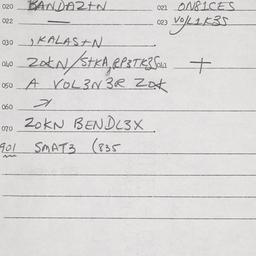 020 BANDAZtN 021 ON81CES
022 — 023 VO/L1K3S
030 , KALAStN
040 ZOKN/StKA, +
050 A VOL3N3R ZOK
060
070 ZOKN BENDL3X
901 SMAT3 (835